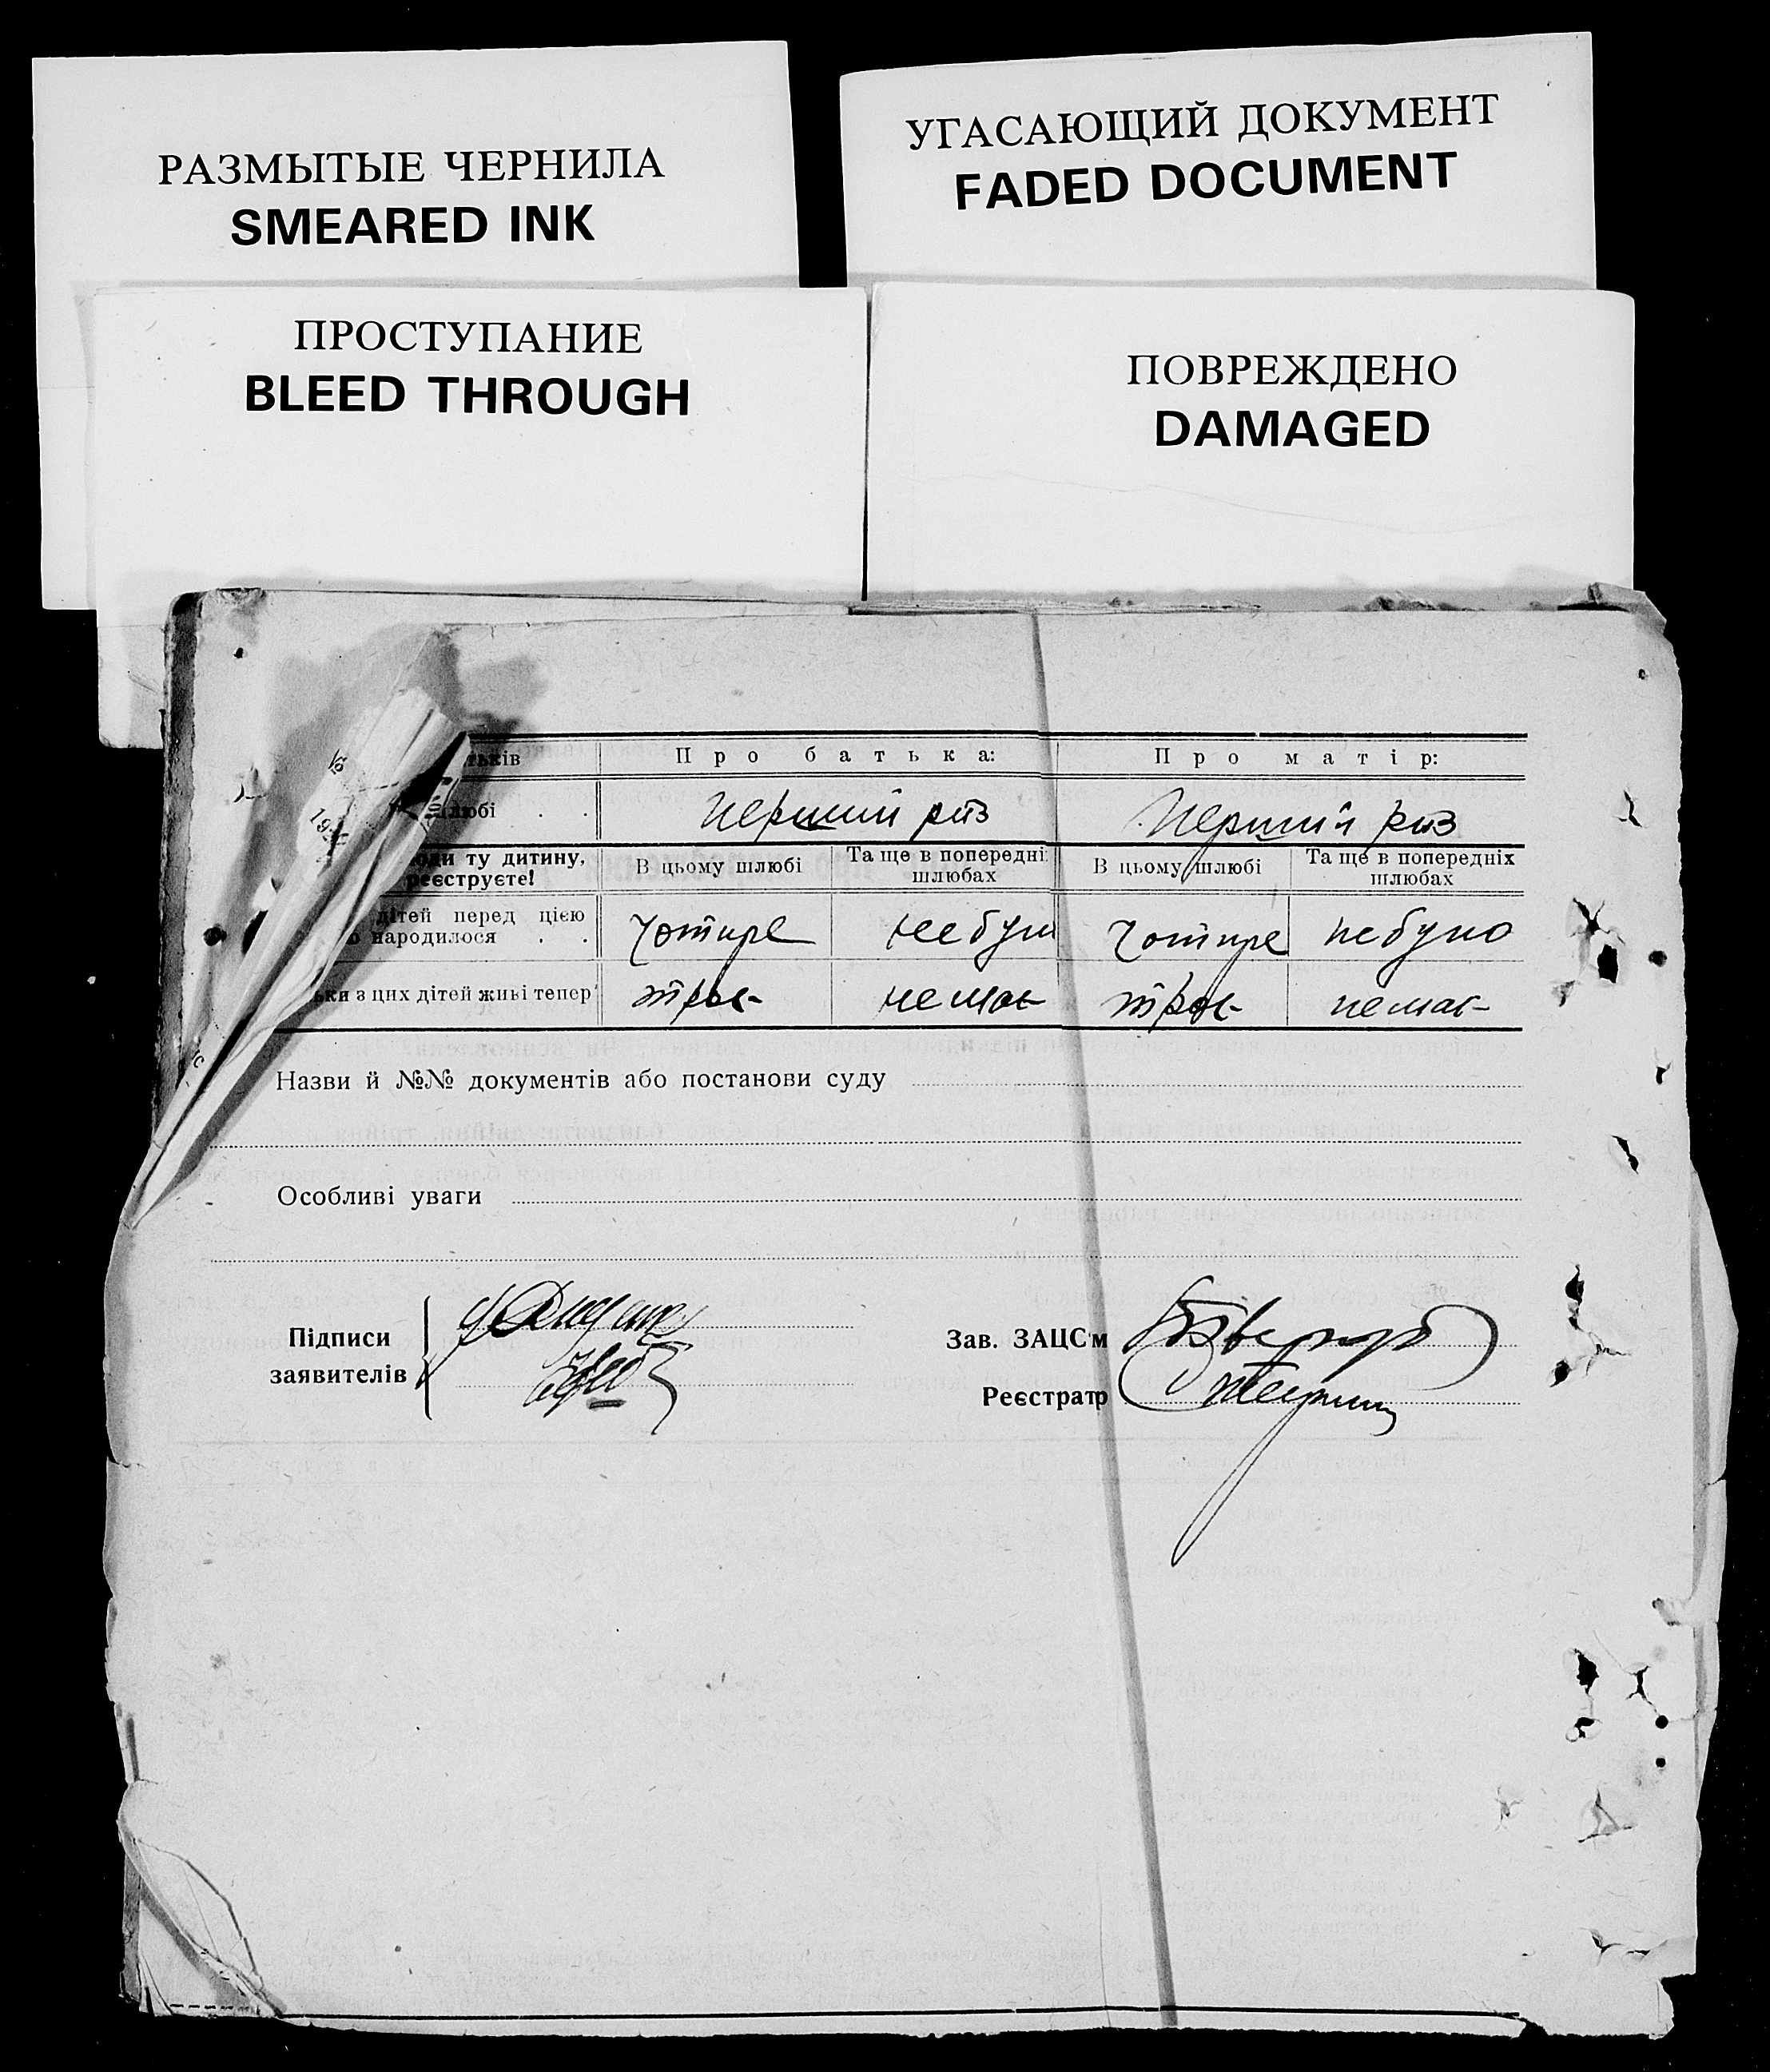 РАЗМЫТЫЕ ЧЕРНИЛА
SMEARED INK
УГАСАЮЩИЙ ДОКУМЕНТ
FADED DOCUMENT
ПРОСТУПАНИЕ
BLEED THROUGH
ПОВРЕЖДЕНО
DAMAGED
тьків Про батька: Про матір:
шлюбі . . Перший раз Перший раз
ту дитину,
реєструєте! В цьому шлюбі Та ще в попередні шлюбах В цьому шлюбі Та ще в попередніх шлюбах
дітей перед цією
народилося . . Чотире не було Чотире не було
з цих дітей живі тепер троє немає троє немає
Назви й №№ документів або постанови суду
Особливі уваги
Підписи
заявителів
Зав. ЗАЦС'м
Реєстратр